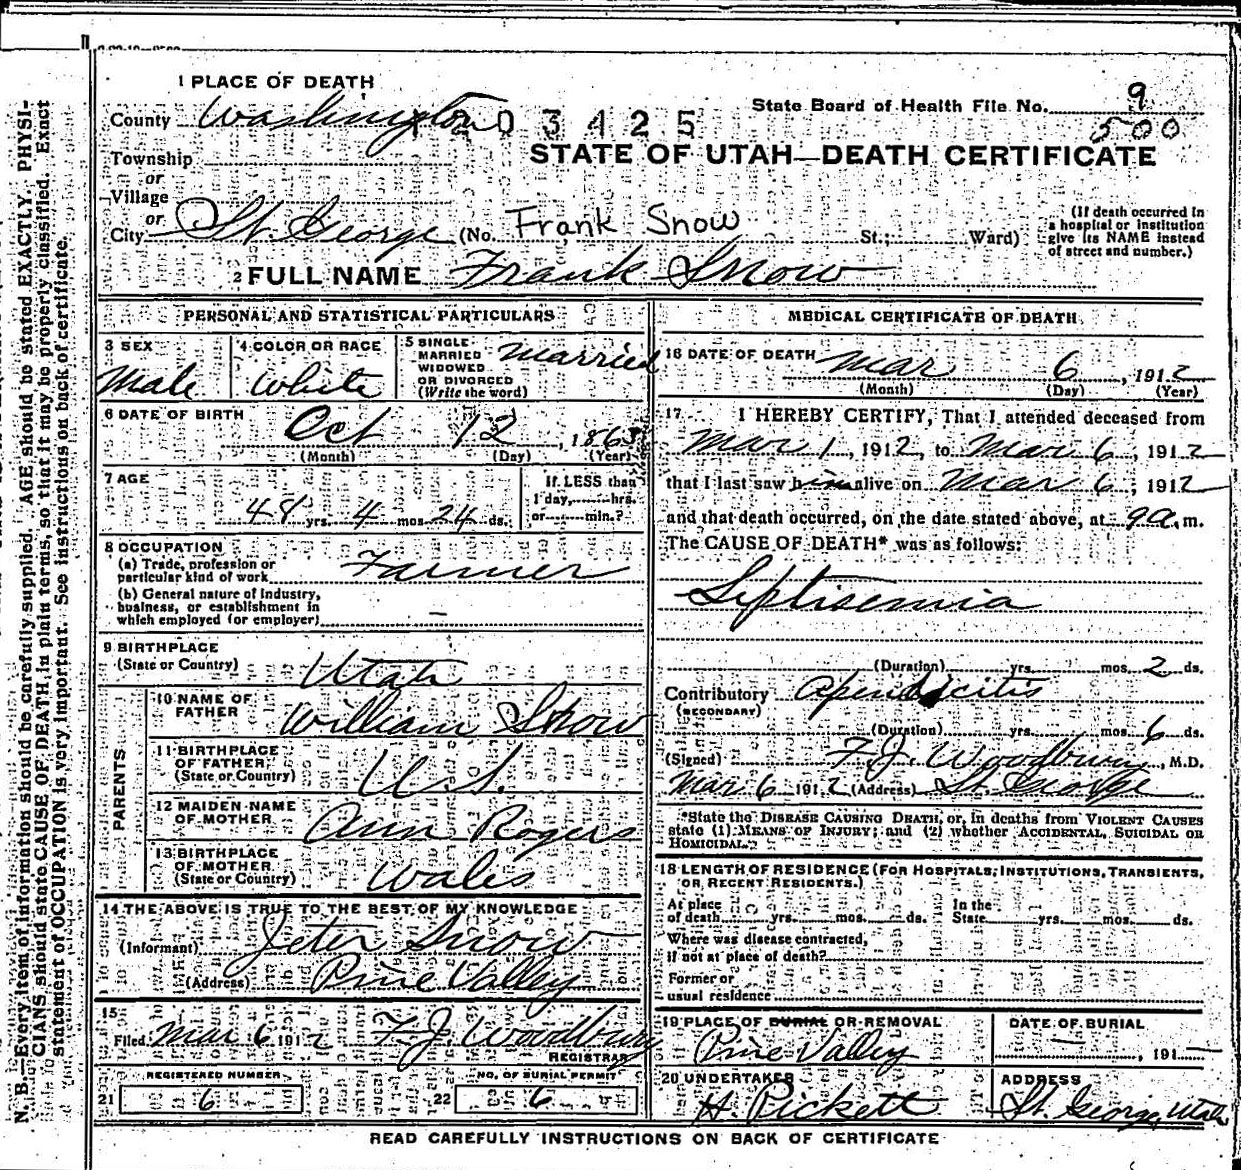 1 PLACE OF DEATH
State Board of Health File No. 9
County Washington 03425 500
STATE OF UTAH—DEATH CERTIFICATE
Township
or
Village
or
City St. George (No. Frank Snow St.; Ward)
(If death occurred in a hospital or institution give its NAME instead of street and number.)
2 FULL NAME Frank Snow
PERSONAL AND STATISTICAL PARTICULARS
3 SEX Male
4 COLOR OR RACE White
5 SINGLE MARRIED WIDOWED OR DIVORCED (Write the word) Married
6 DATE OF BIRTH Oct 12, 1863
(Month) (Day) (Year)
7 AGE 48 yrs. 4 mos. 24 ds.
If LESS than 1 day, hrs. or min.?
8 OCCUPATION
(a) Trade, profession or particular kind of work Farmer
(b) General nature of industry, business, or establishment in which employed (or employer) –
9 BIRTHPLACE
(State or Country) Utah
PARENTS
10 NAME OF FATHER William Snow
11 BIRTHPLACE OF FATHER (State or Country) U.S.
12 MAIDEN NAME OF MOTHER Ann Rogers
13 BIRTHPLACE OF MOTHER (State or Country) Wales
14 THE ABOVE IS TRUE TO THE BEST OF MY KNOWLEDGE
(Informant) Jeter Snow
(Address) Pine Valley
15
Filed Mar 6 1912 F. J. Woodbury
REGISTRAR
REGISTERED NUMBER
21 6
NO. OF BURIAL PERMIT
22 6
MEDICAL CERTIFICATE OF DEATH
16 DATE OF DEATH Mar 6, 1912
(Month) (Day) (Year)
17 I HEREBY CERTIFY, That I attended deceased from
Mar 1, 1912, to Mar 6, 1912
that I last saw him alive on Mar 6, 1912
and that death occurred, on the date stated above, at 9 a.m.
The CAUSE OF DEATH* was as follows:
Septisemia
(Duration) yrs. mos. 2 ds.
Contributory (SECONDARY) Apendicitis
(Duration) yrs. mos. 6 ds.
(Signed) F. J. Woodbury, M.D.
Mar 6 1912 (Address) St. George
*State the DISEASE CAUSING DEATH, or, in deaths from VIOLENT CAUSES
state (1) MEANS OF INJURY; and (2) whether ACCIDENTAL, SUICIDAL OR
HOMICIDAL.
18 LENGTH OF RESIDENCE (FOR HOSPITALS, INSTITUTIONS, TRANSIENTS,
OR RECENT RESIDENTS.)
At place of death yrs. mos. ds. In the State yrs. mos. ds.
Where was disease contracted,
if not at place of death?
Former or
usual residence
19 PLACE OF BURIAL OR REMOVAL Pine Valley
DATE OF BURIAL — , 191 —
20 UNDERTAKER H. Pickett
ADDRESS St. George, Utah
READ CAREFULLY INSTRUCTIONS ON BACK OF CERTIFICATE
N. B.—Every item of information should be carefully supplied. AGE should be stated EXACTLY. PHYSI-
CIANS should state CAUSE OF DEATH in plain terms, so that it may be properly classified. Exact
statement of OCCUPATION is very important. See instructions on back of certificate.